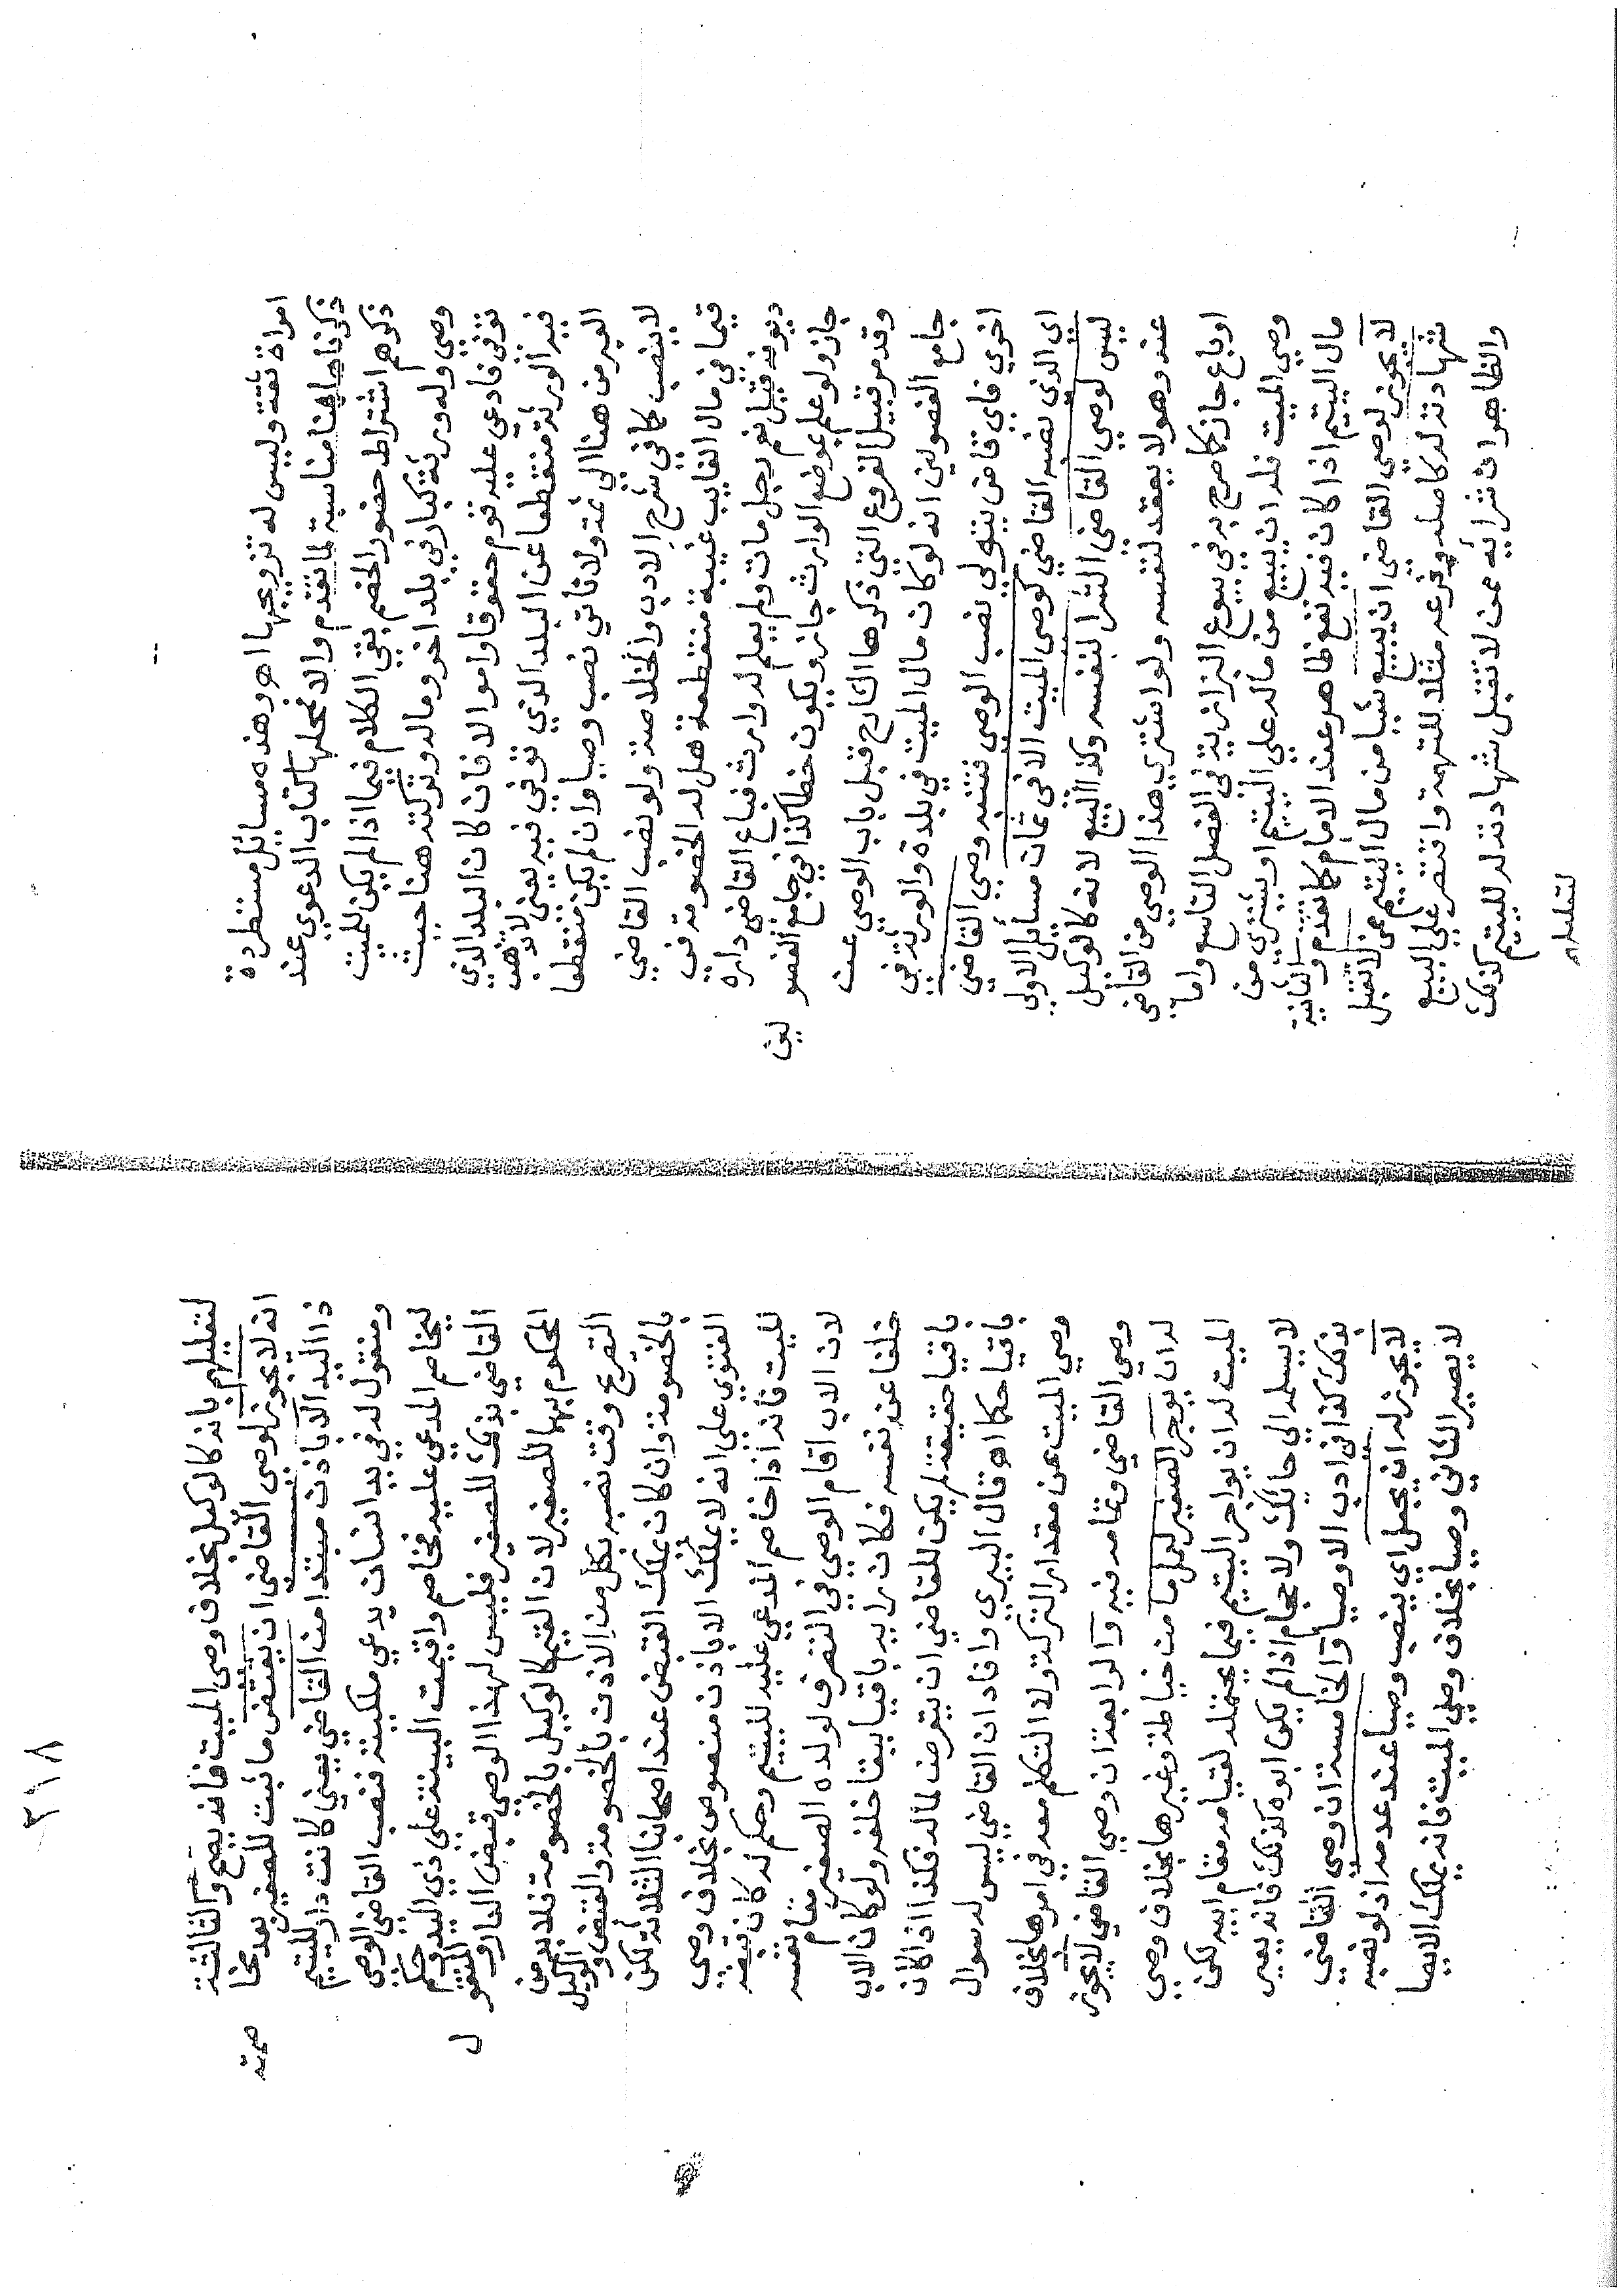 امراة ثقة وليس له تزويجها اهـ وهذه مسائل مستطردة
ذكرناها هنا مناسبة لما تقدم والا فمحلها كتاب الدعوي عند
ذكرهم اشتراط حضور الخصم بقي الكلام فيما اذا لم يكن للميت
وصي وله ورثة كبار في بلد اخر وماله وتركته هنا حيث
توفي فادعي عليه قوم حقوقا واموالا فان كان البلد الذي
فيه الورثة منقطعا عن البلد الذي توفي فيه يعني لا تذهب
العير من هنا الي ثمة ولا تاتي نصب وصيا وان لم يكن منقطعا
لا ينصب كما في شرح الادب والخلاصة ولو نصب القاضي
قيما في مال الغايب غيبة منقطعة هل له الخصومة في
ديونه قيل نعم رجل مات ولم يعلم له وارث فباع القاضي داره
جاز ولو علم بموضع الوارث جاز ويكون حفظا كذا في جامع الفصو
لين
وقد مر قبيل الفروع التي ذكرها الشارح قبل باب الوصي عن
جامع الفصولين انه لو كان مال الميت في بلدة والورثة في
اخري فاي قاض يتولي نصب الوصي فتنبه وصي القاضي
اي الذي نصبه القاضي كوصي الميت الا في ثمان مسائل الاولي
ليس لوصي القاضي الشرا لنفسه وكذا البيع لانه كالوكيل
عنه وهو لا يعقد لنفسه ولو اشتري هذا الوصي من القاضي
او باع جاز كما صرح به في بيوع البزازية في الفصل التاسع واما
وصي الميت فله ان يبيع من ماله علي اليتيم او يشتري من
مال اليتيم اذا كان فيه نفع ظاهر عند الامام كما تقدم والثانية
لا يجوز لوصي القاضي ان يبيع شيا من مال اليتيم ممن لا تقبل
شهادته له كاصله وفرعه مثلا للتهمة واقتصر علي البيع
والظاهر ان شرايه ممن لا تقبل شهادته له لليتيم كذلك
لتعليلهم
٣١٨
لتعليلهم بانه كالوكيل بخلاف وصي الميت فانه يصح والثالثة
انه لا يجوز لوصي القاضي ان يقبض ما ثبت للصغير بعد مخا
صمته
ذا اليد الا باذن مبتدا من القاضي يعني كانت دار لليتيم
ومنقول له في يد انسان يدعي ملكيته فنصب القاضي الوصي
ليخاصم المدعي عليه فخاصم واقيمت البينة علي ذي اليد وحكم
القاضي بذلك للصغير فليس لهذا الوصي قبض الدار والمنقو
ل
المحكوم بها للصغير لان القيم كالوكيل بالخصومة فلا بد من
التقرع وقت نصبه بكل من الاذن بالخصومة والقبض والوكيل
بالخصومة وان كان يملك القبض عند اصحابنا الثلاثة لكن
الفتوي علي انه لا يملك الا باذن منصوص بخلاف وصي
الميت فانه اذا خاصم المدعي عليه لليتيم وحكم له كان قبضه
لان الاب اقام الوصي في التصرف لولده الصغير مقام نفسه
خلفا عنه نفسه فكان رايه باقيا ببقا خلفه ولو كان الاب
باقيا حقيقة لم يكن للقاضي ان يتعرض لماله فكذا اذا كان
باقيا حكما اهـ قال البيري وافاد ان القاضي ليس له سوال
وصي الميت عن مقدار التركة ولا التكلم معه في امرها بخلاف
وصي القاضي وتمامه فيه والرابعة ان وصي القاضي لا يجوز
له ان يوجر الصغير لعمل ما من خياطة وغيرها بخلاف وصي
الميت له ان يواجر اليتيم فيما يحتمله لقيامه مقام ابيه لكن
لا يسلمه الي حايك ولا حجام اذا لم يكن ابوه كذلك فانه يعير
بذلك كذا في ادب الاوصيا والخامسة ان وصي القاضي
لا يجوز له ان يجعل اي ينصب وصيا عند عدمه اذ لو نصبه
لا يصير الثاني وصيا بخلاف وصي الميت فانه يملك الايصا